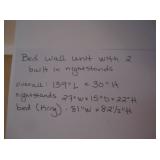 Bed wall unit with 2
built in nightstands
overall: 139"L x 30"H
nightstands 27"W x 15"D x 22"H
bed (King) - 81"W x 82 1/2"H